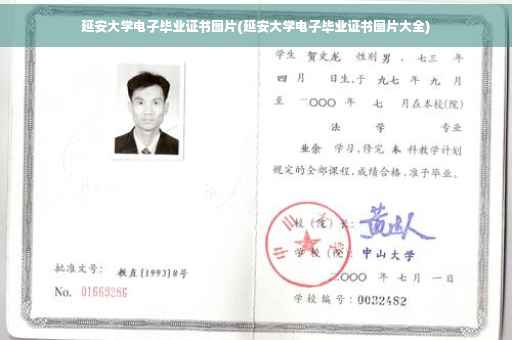 延安大学电子毕业证书图片(延安大学电子毕业证书图片大全)
学生 贺文龙 性别 男 、七三 年
四 月 日生、于 九七 年 九 月
至 二〇〇〇 年 七 月在本校(院)
法 学 专业
业余 学习，修完 本 科教学计划
规定的全部课程，成绩合格，准予毕业。
校（院）长：
学校（院）：中山大学
二〇〇〇 年 七 月 一 日
批准文号： 教直[1993]8号
No. 01669286
学校编号：0032482